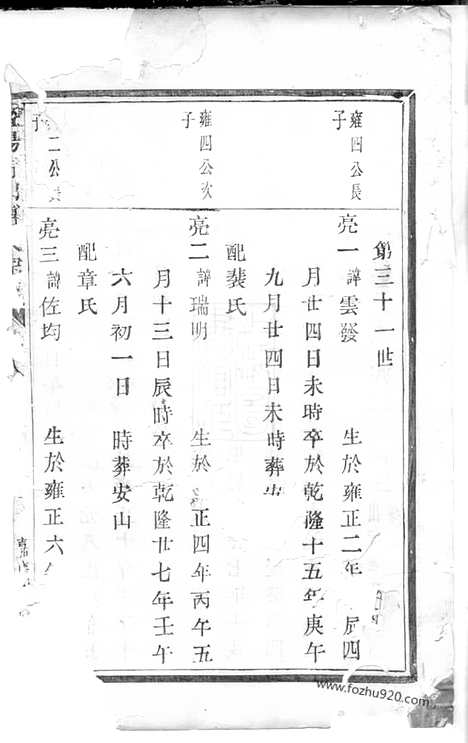 第三十一世
雍四公長
子
亮一 諱雲發 生於雍正二年 辰四
月廿四日未時卒於乾隆十五年庚午
九月廿四日未時葬
配裴氏
雍四公次
子
亮二 諱瑞明 生於 正四年丙午五
月十三日辰時卒於乾隆廿七年壬午
六月初一日 時葬安山
配章氏
二公長
子
亮三 諱佐均 生於雍正六
www.fozhu920.com